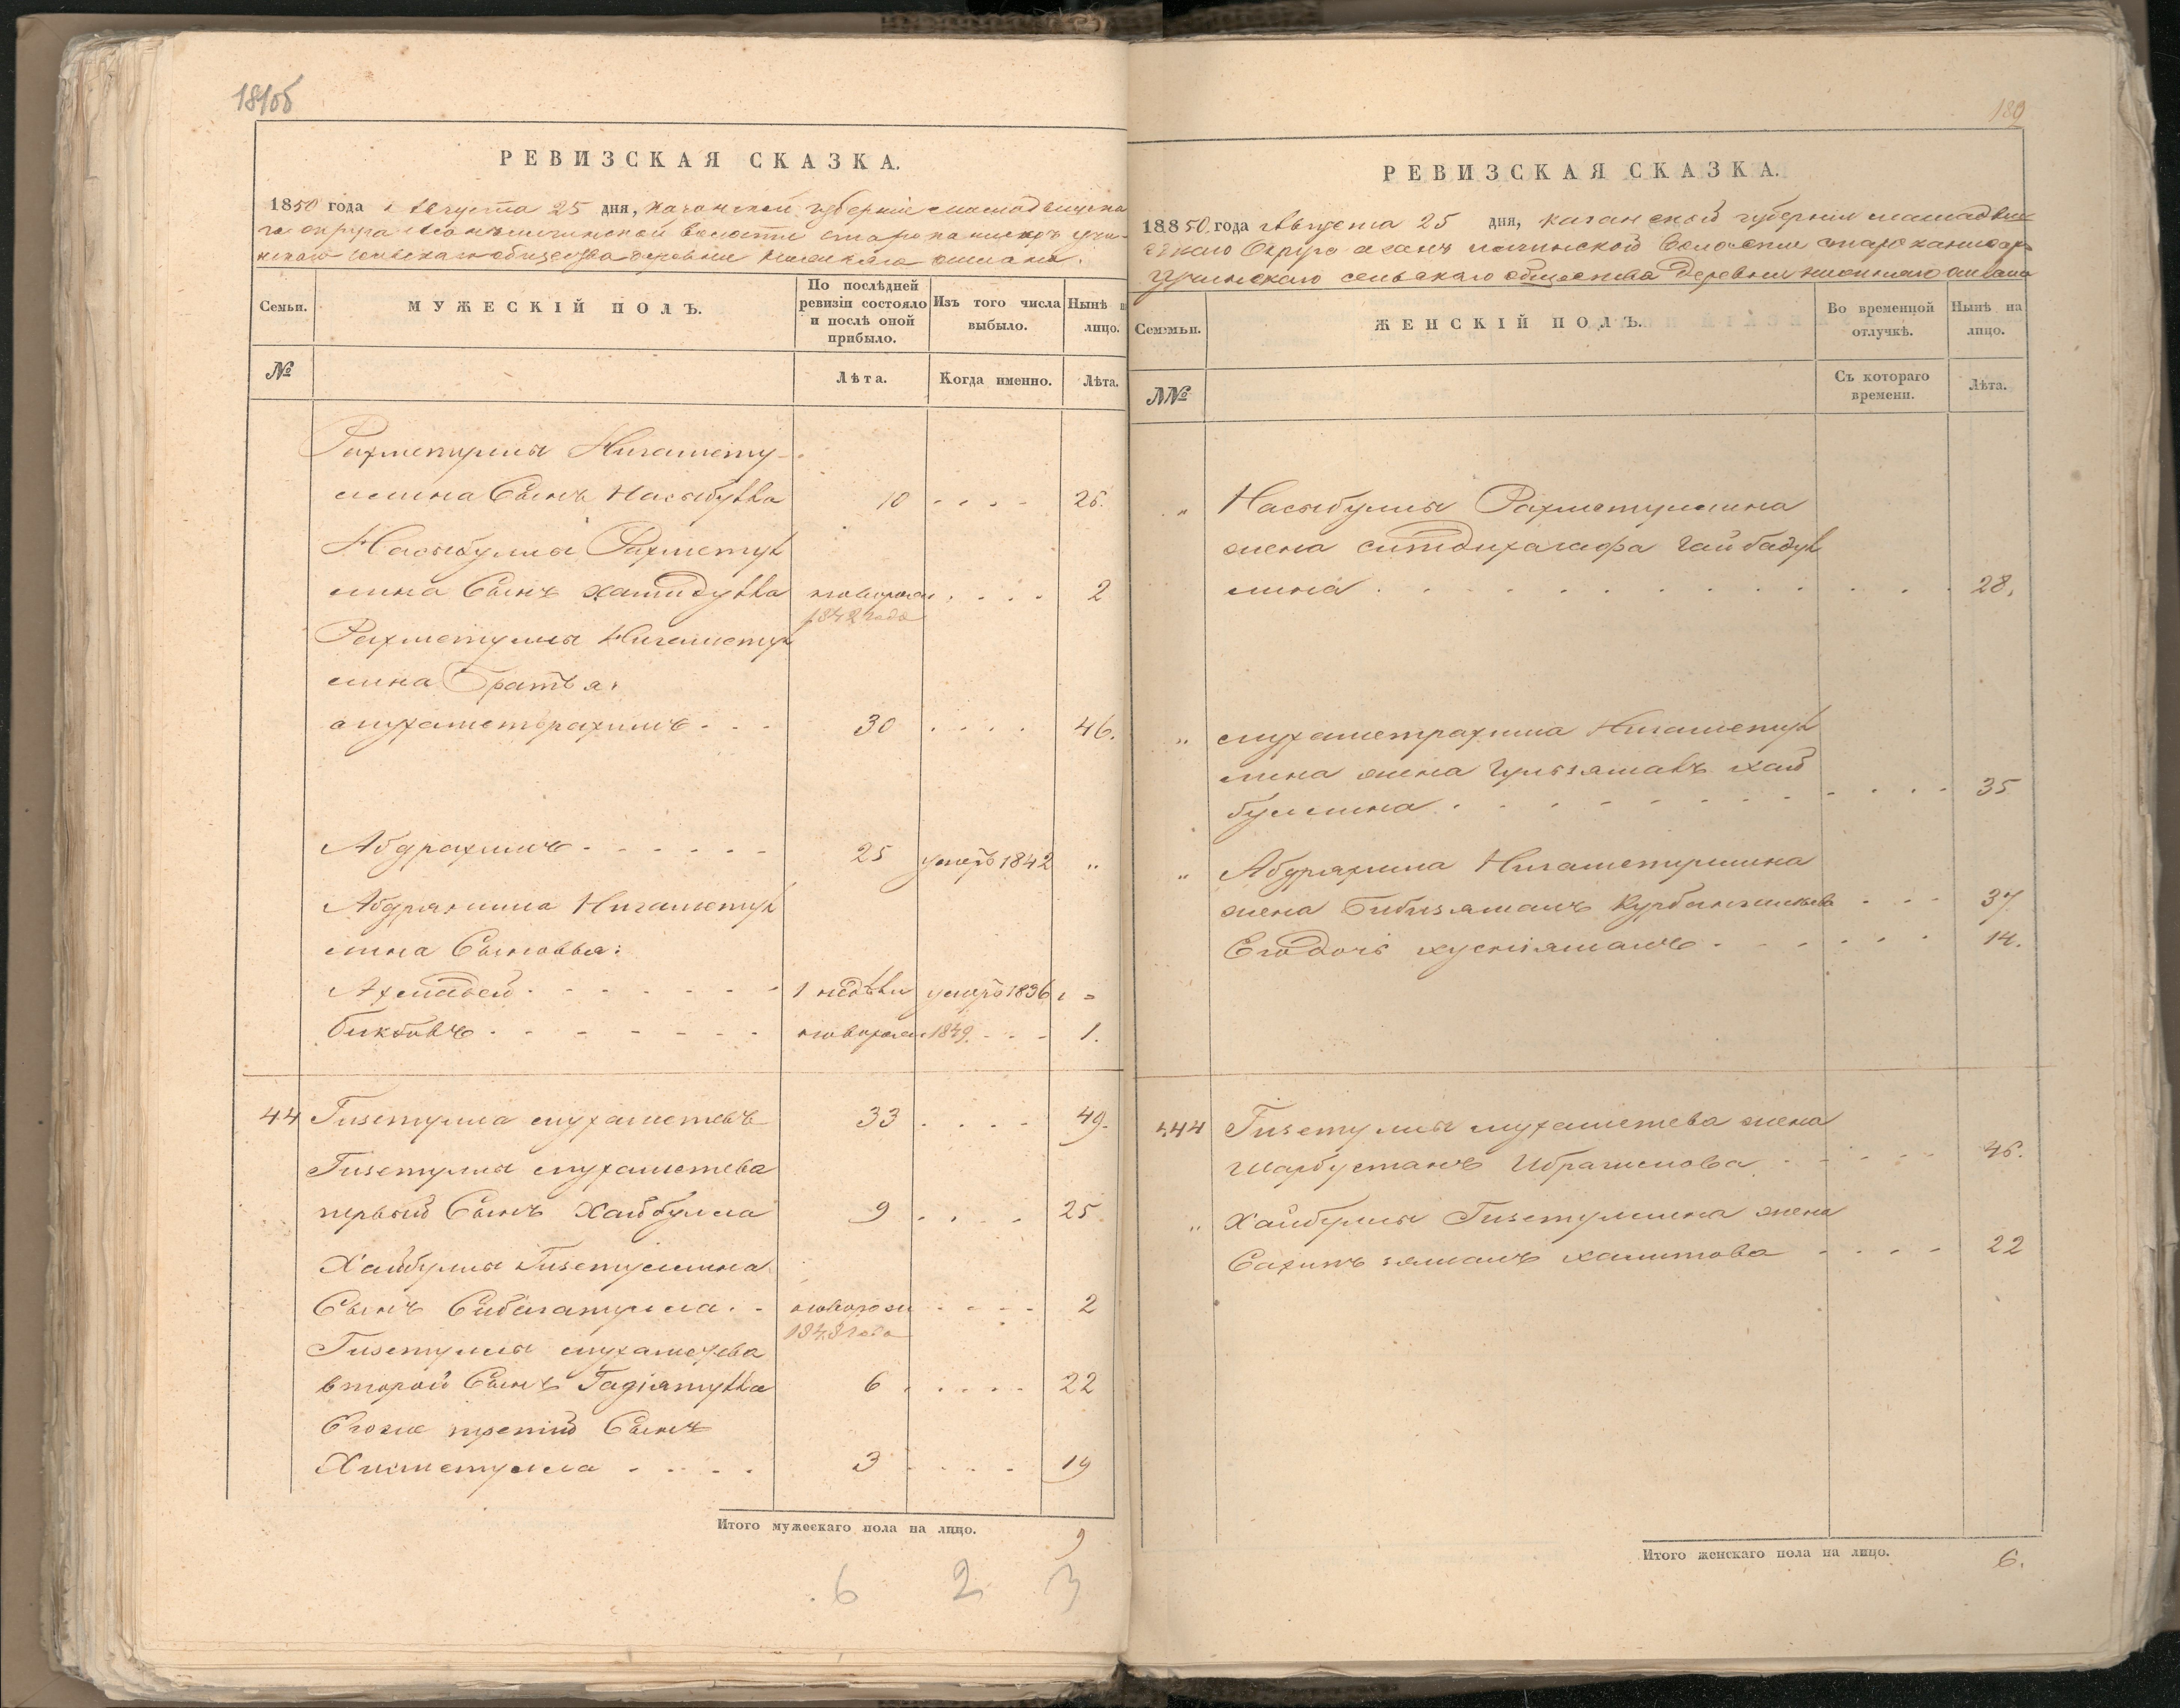 181об
РЕВИЗСКАЯ СКАЗКА.
1850 года Августа 25 дня, Казанской губерніи Мамадышска
го округа волости
сельскаго общества деревни
Семьи.
МУЖЕСКІЙ ПОЛЪ.
По послѣдней ревизіи состояло и послѣ оной прибыло.
Изъ того числа выбыло.
Нынѣ
лицо.
№
Лѣта.
Когда именно.
Лѣта.
Рахметуллы Нигамету-
ллина Сынъ Насыбулла 10 . . . . 26.
Насыбуллы Рахметул
лина Сынъ Хамидулла новорожден . . . . 2
1848 года
Рахметуллы Нигаметул
лина Братья:
Мухаметрахимъ . . . 30 . . . . 46.
Абдрахимъ . . . . . . 25 умеръ 1842 "
Абдрахима Нигаметул
лина Сыновья:
Ахмадей . . . . . . . 1 недѣли умеръ 1836 "
. . . . . . . новорожден 1849 . . . 1.
44 Гизетулла Мухаметевъ 33 . . . . 49.
Гизетуллы Мухаметева
первый Сынъ Хайбулла 9 . . . . 25
Хайбуллы Гизетуллина
Сынъ Сибагатулла . . новорожден . . . . 2
1848 года
Гизетуллы Мухаметева
второй Сынъ Гадіятулла 6 . . . . . 22
Егоже третій Сынъ
Хисметулла . . . . 3 . . . . 19
Итого мужескаго пола на лицо.
9
6 2 3
182
РЕВИЗСКАЯ СКАЗКА.
18850 года Августа 25 дня, Казанской губерніи Мамадыш
скаго Округа волости
сельскаго общества деревни
Семьи.
ЖЕНСКІЙ ПОЛЪ.
Во временной отлучкѣ.
Нынѣ на лицо.
№
Съ котораго времени.
Лѣта.
" Насыбуллы Рахметуллина
жена Гайбадул
лина . . . . . . . . . . 28.
" Мухаметрахима Нигаметул
лина жена Хай
буллина . . . . . . . . . . 35
" Абдрахима Нигаметуллина
жена Бибизямалъ . . . 37
Его дочь Хуснізямалъ . . . . . . 14.
444 Гизетуллы Мухаметева жена
Шарбустанъ Ибрагимова . . . . . 46.
" Хайбуллы Гизетуллина жена
Сахипъ зямалъ Хамитова . . . . 22
Итого женскаго пола на лицо.
6.